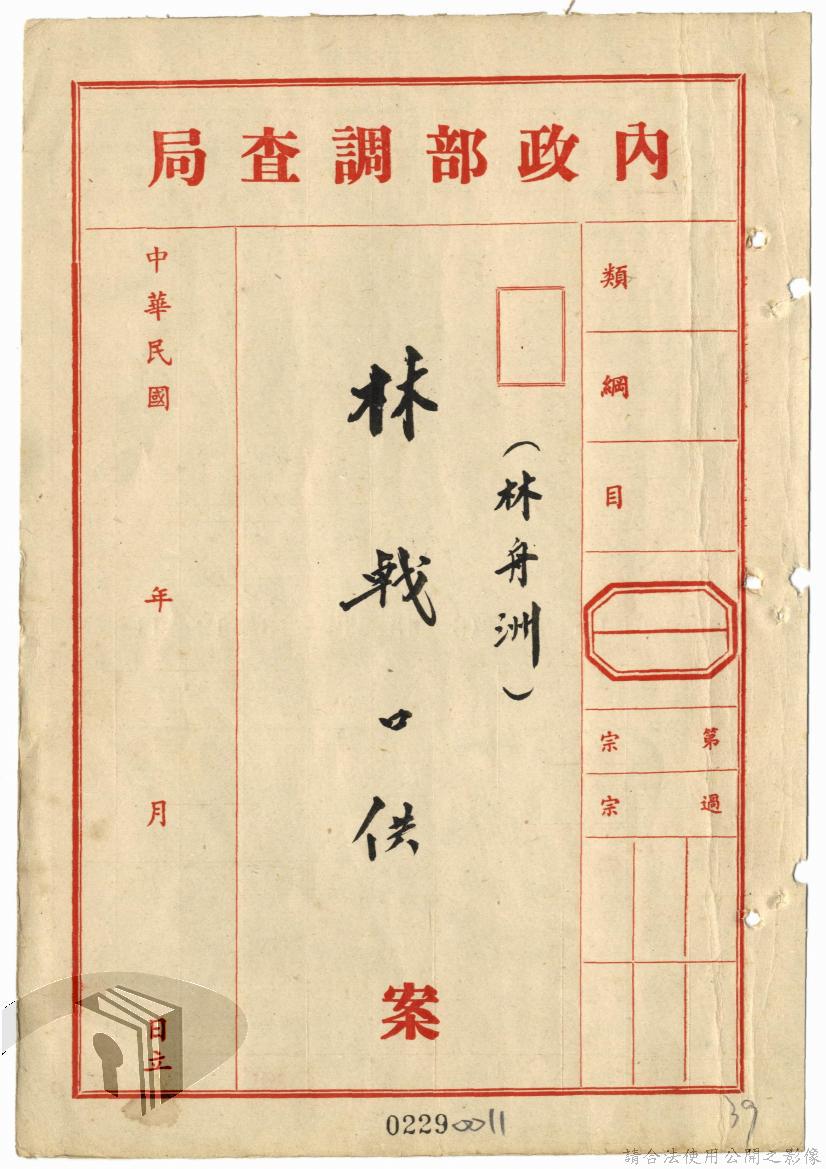 內政部調查局
類
綱
目
第宗
過宗
（林舟洲）
林戟口供
案
中華民國年月日立
02290011
39
請合法使用公開之影像